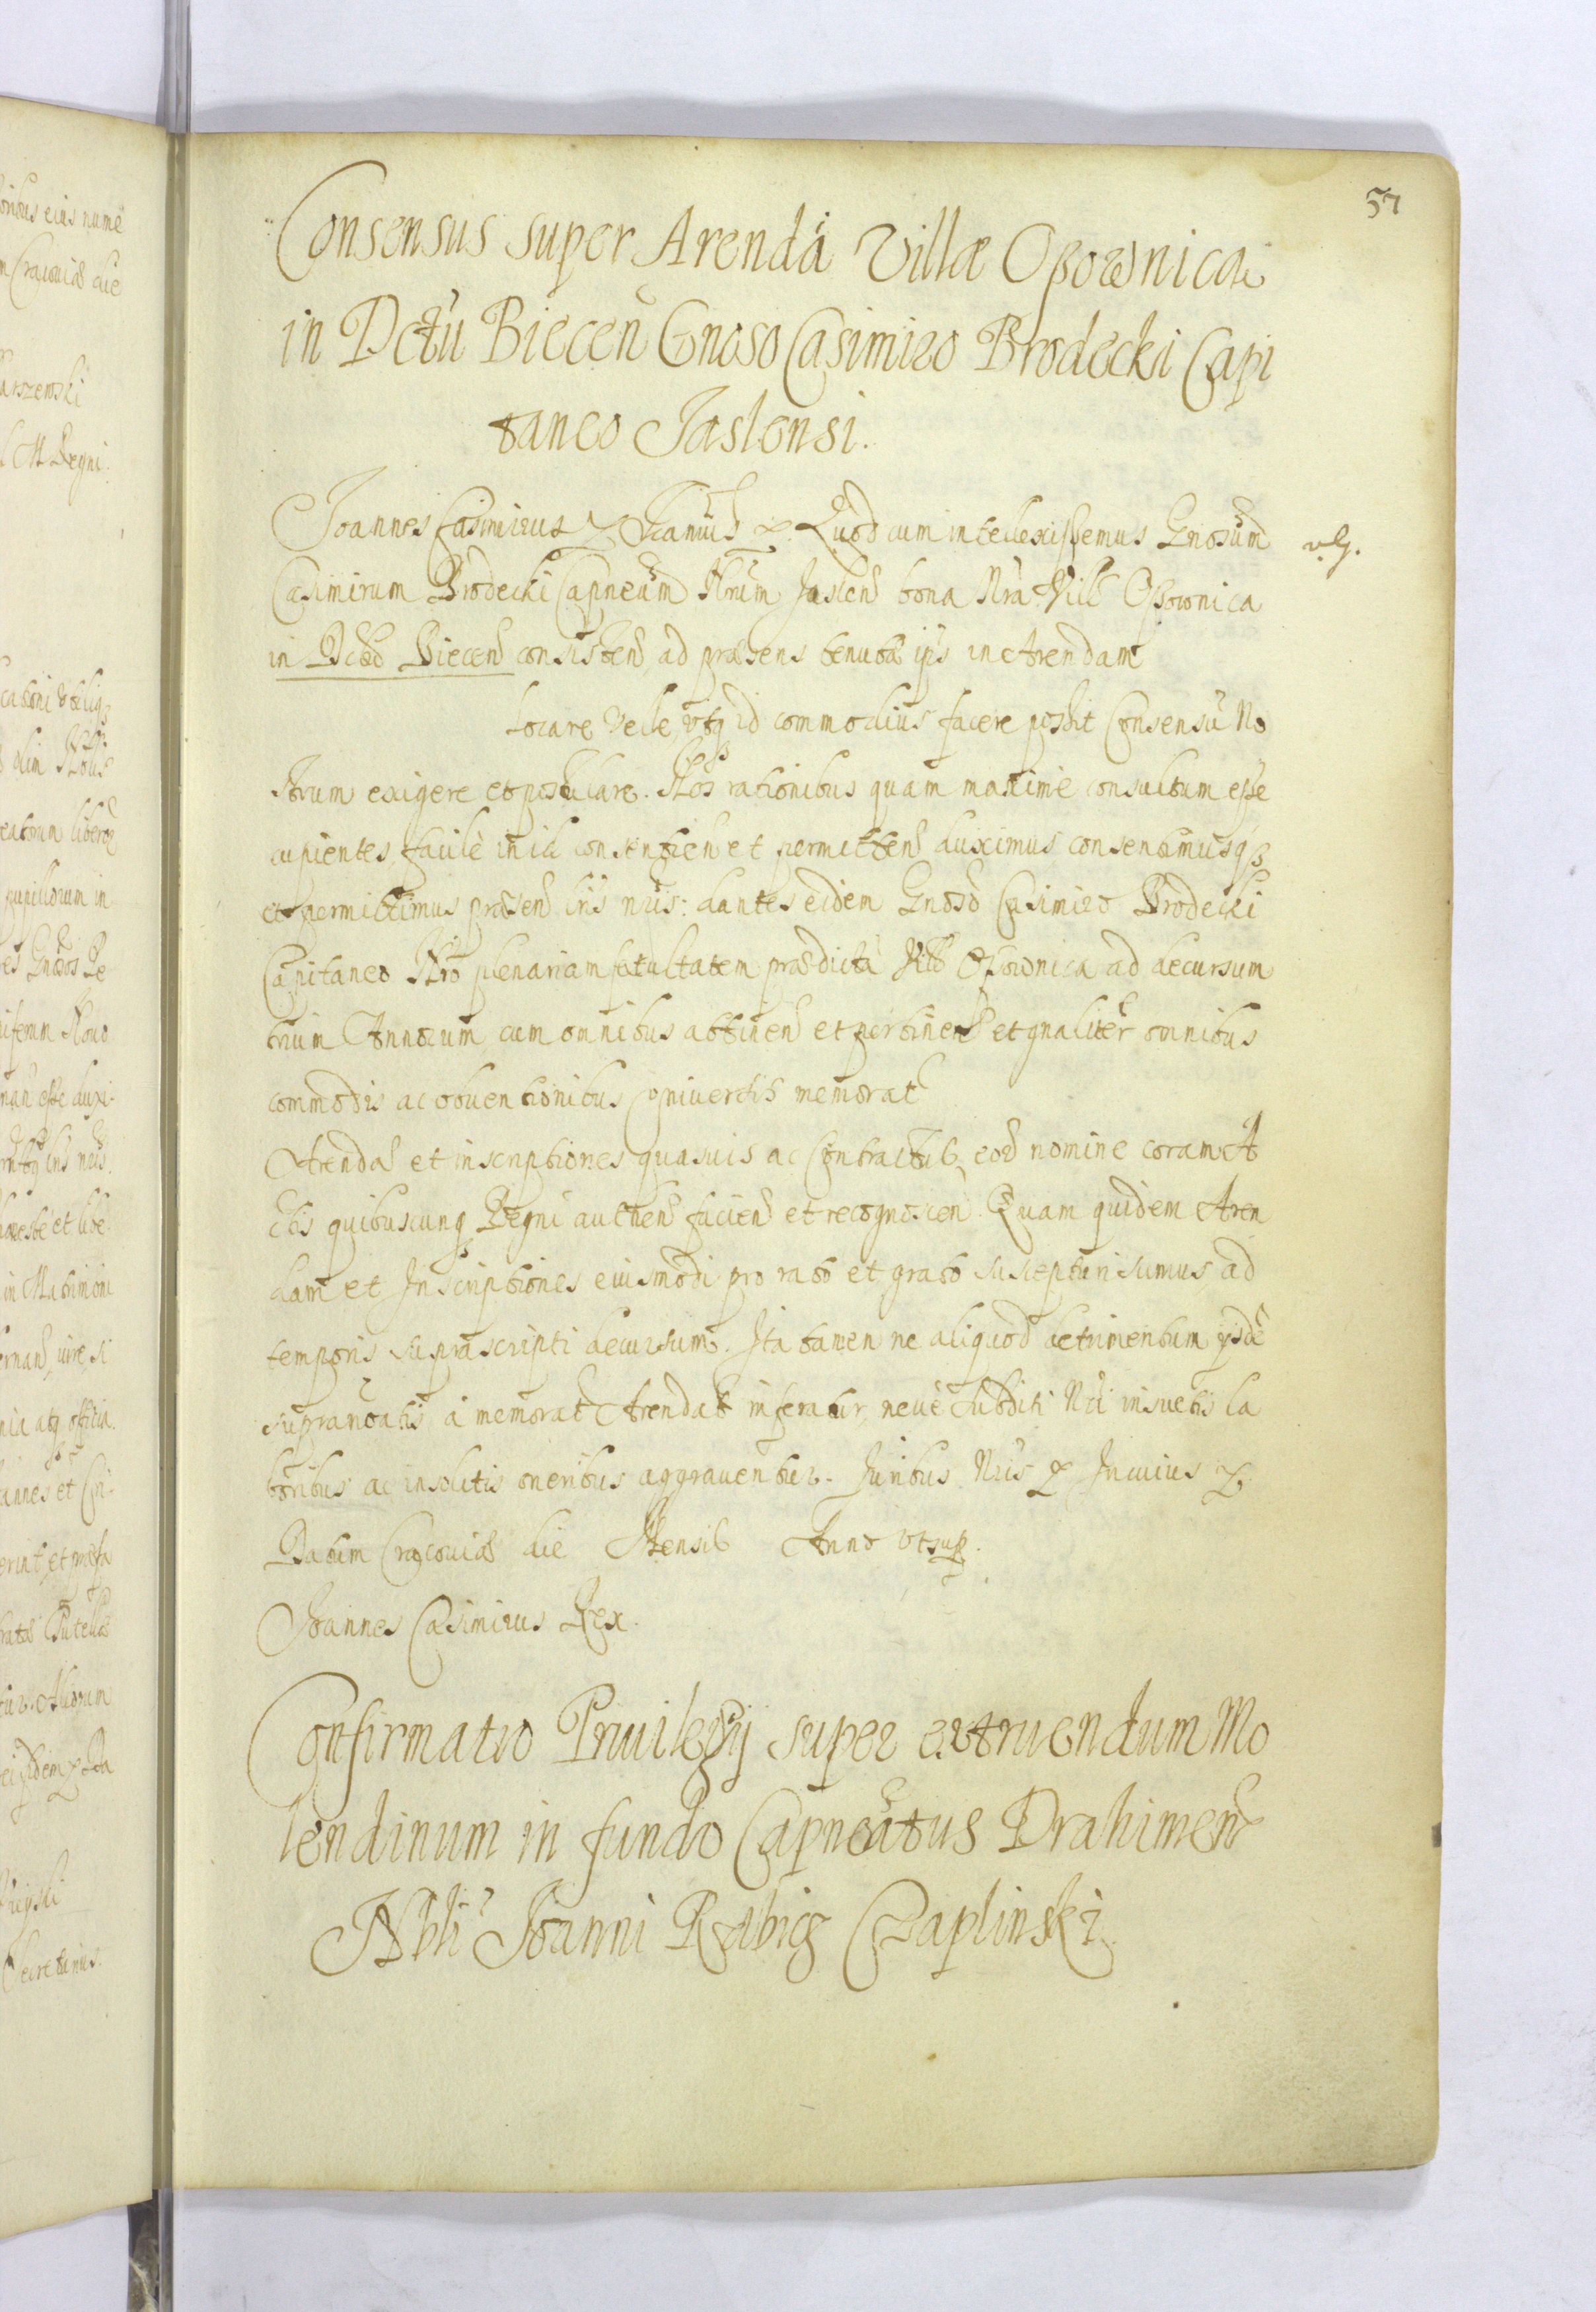 57
Consensus super Arendã Villæ Osownica
in Dctũ Biecen̄ Gnoso Casimiro Brodecki Capi
taneo Jaslensi.
Joannes Casimirus Quod cum intellexissemus Gnosum
Casimirum Brodecki Capneum Nrum Jaslen bona Nra Vill Osownica
in Dctu Biecen consisten ad præsens tenutæ ipsius in Arendam
Locare velle utq id commodius facere possit Consensũ No
strum exigere et postulare. Nos rationibus quam maxime consultum esse
cupientes facile in id consentien et permitten duximus consentimusq
et permittimus præsen lris nris: dantes eidem Gnoso Casimiro Brodecki
Capitaneo Nro plenariam facultatem prædictã Vill Osownica ad decursum
trium Annorum cum omnibus attinen et pertinen et gnaliter omnibus
commodis ac obventionibus universis memorat
Arendæ et inscriptiones quasuis ac Contractus eod nomine coram A
ctis quibuscunq Regni authen facien et recognoscen. Quam quidem Aren
dam et Inscriptiones eiusmodi pro rato et grato suscepturi sumus ad
temporis suprascripti decursum. Ita tamen ne aliquod detrimentum ijsdẽ
supranotatis à memorat Arendat inferatur neue subditi Nri insuetis la
boribus ac insolitis oneribus aggrauentur. Juribus Nris In cuius
Datum Cracouiæ die Mensis Anno ut sup.
Joannes Casimirus Rex.
Confirmatio Priuilegij super extruendum Mo
lendinum in fundo Capneatus Drahimen
Nbli Joanni Czaplinski